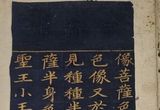 像菩薩色
色像又於
見種種身
薩半身色
聖王小王